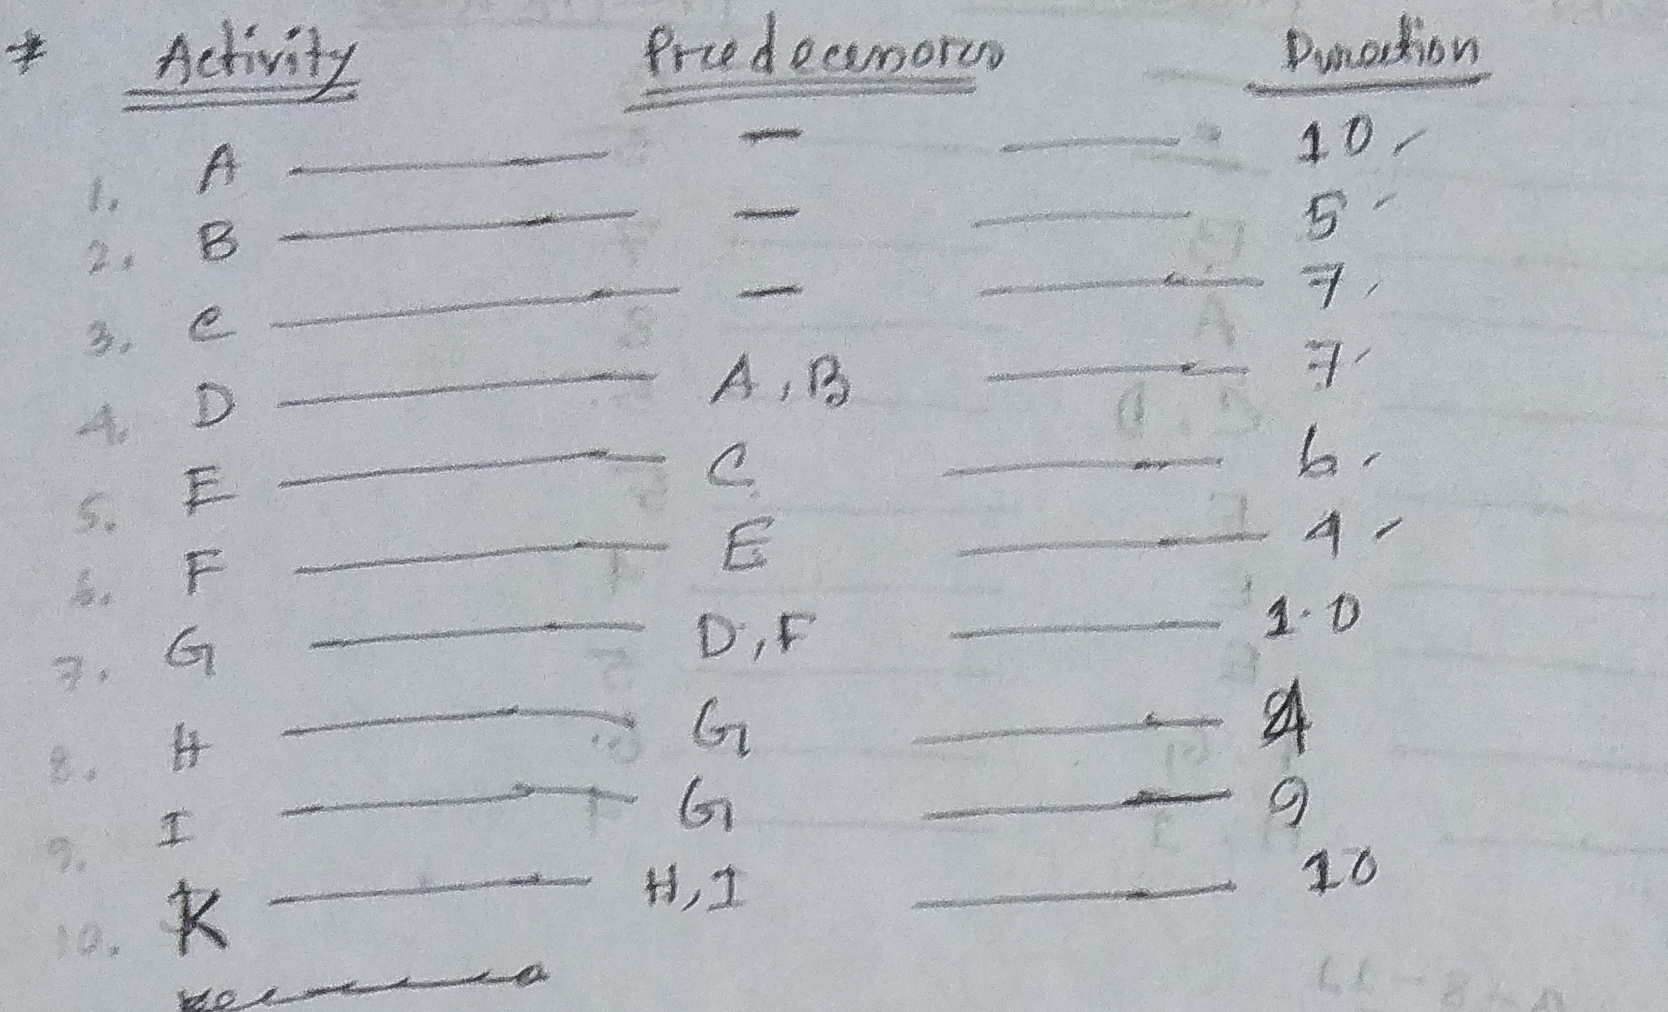 * Activity Predecessors Duration
1. A — 10
2. B — 5
3. C — 7
4. D A, B 7
5. E C 6
6. F E 4
7. G D, F 10
8. H G 4
9. I G 9
10. K H, I 10